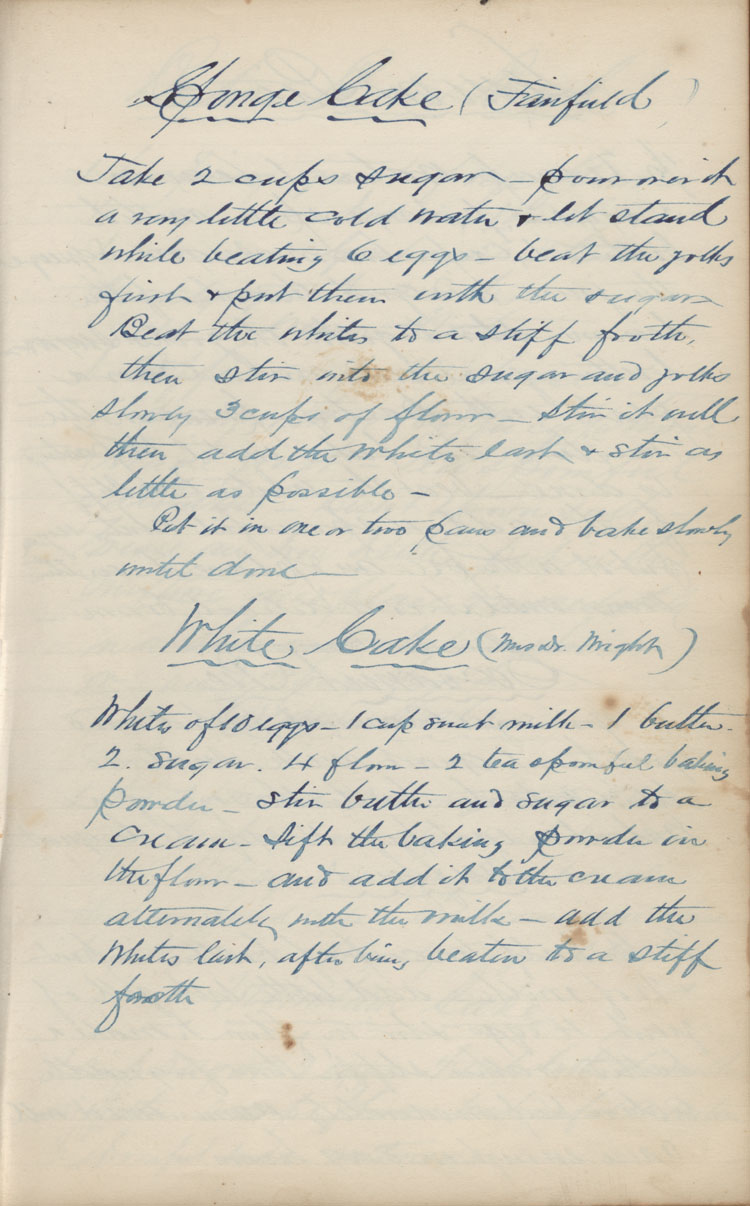 Sponge Cake (Fairfield)
Take 2 cups sugar – pour over it
a very little cold water & let stand
while beating 6 eggs – beat the yolks
first & put them with the sugar
Beat the whites to a stiff froth,
then stir into the sugar and yolks
slowly 3 cups of flour – Stir it well
then add the whites last & stir as
little as possible –
Put it in one or two pans and bake slowly
until done –
White Cake (Mrs Dr. Wright)
Whites of 10 eggs – 1 cup sweet milk – 1 butter –
2. sugar. 4 flour – 2 tea spoonful baking
powder – stir butter and sugar to a
cream – Sift the baking powder in
the flour – and add it to the cream
alternately with the milk – add the
whites last, after being beaten to a stiff
froth